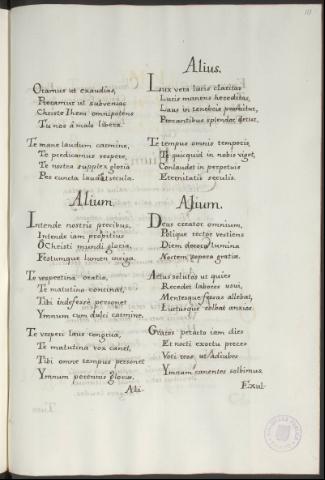 Oramus ut exaudias,
Precamur ut subvenias
Christe Ihesu omnipotens
Tu nos à malo libera.
Te mane laudum carmine,
Te predicamus vespere,
Te nostra supplex gloria
Per cuncta laudat secula.
Alium.
Intende nostris precibus,
Intende iam propitius
O Christi mundi gloria,
Festumque lumen
Te vespertina oratio,
Te matutina concinat,
Tibi indefessè personet
Ymnum cum dulci carmine.
Te vesperi laus congrua,
Te matutina vox canet,
Tibi omne tempus personet
Ymnum perennis gloriæ.
Ali-
Alius.
Lux vera lucis claritas
Lucis manens hereditas,
Laus in tenebris
Precantibus splendor
Te tempus omnis temporis,
Te quicquid in nobis viget,
Conlaudet in perpetuis
Eternitatis seculis.
Alium.
Deus creator omnium,
Polique rector vestiens
Diem decoro lumina
Noctem sopora gratia.
Actus solutos ut quies
Recedet labores usui,
Mentesque fessas allebat,
Luctusque solbat anxios.
Grates peracto iam dies
Et nocti exortu preces
Voti reos, ut adiubes
Ymnum canentes solbimus.
Exul-